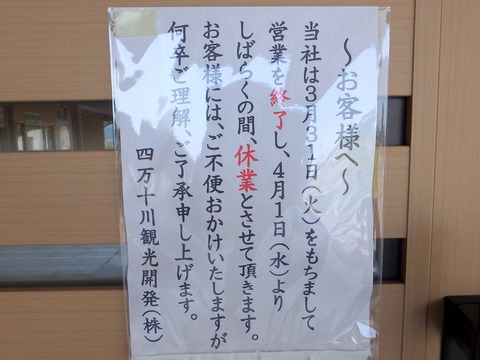 ～お客様へ～
当社は３月３１日（火）をもちまして
営業を終了し、４月１日（水）より
しばらくの間、休業とさせて頂きます。
お客様には、ご不便おかけいたしますが
何卒ご理解、ご了承申し上げます。
四万十川観光開発（株）